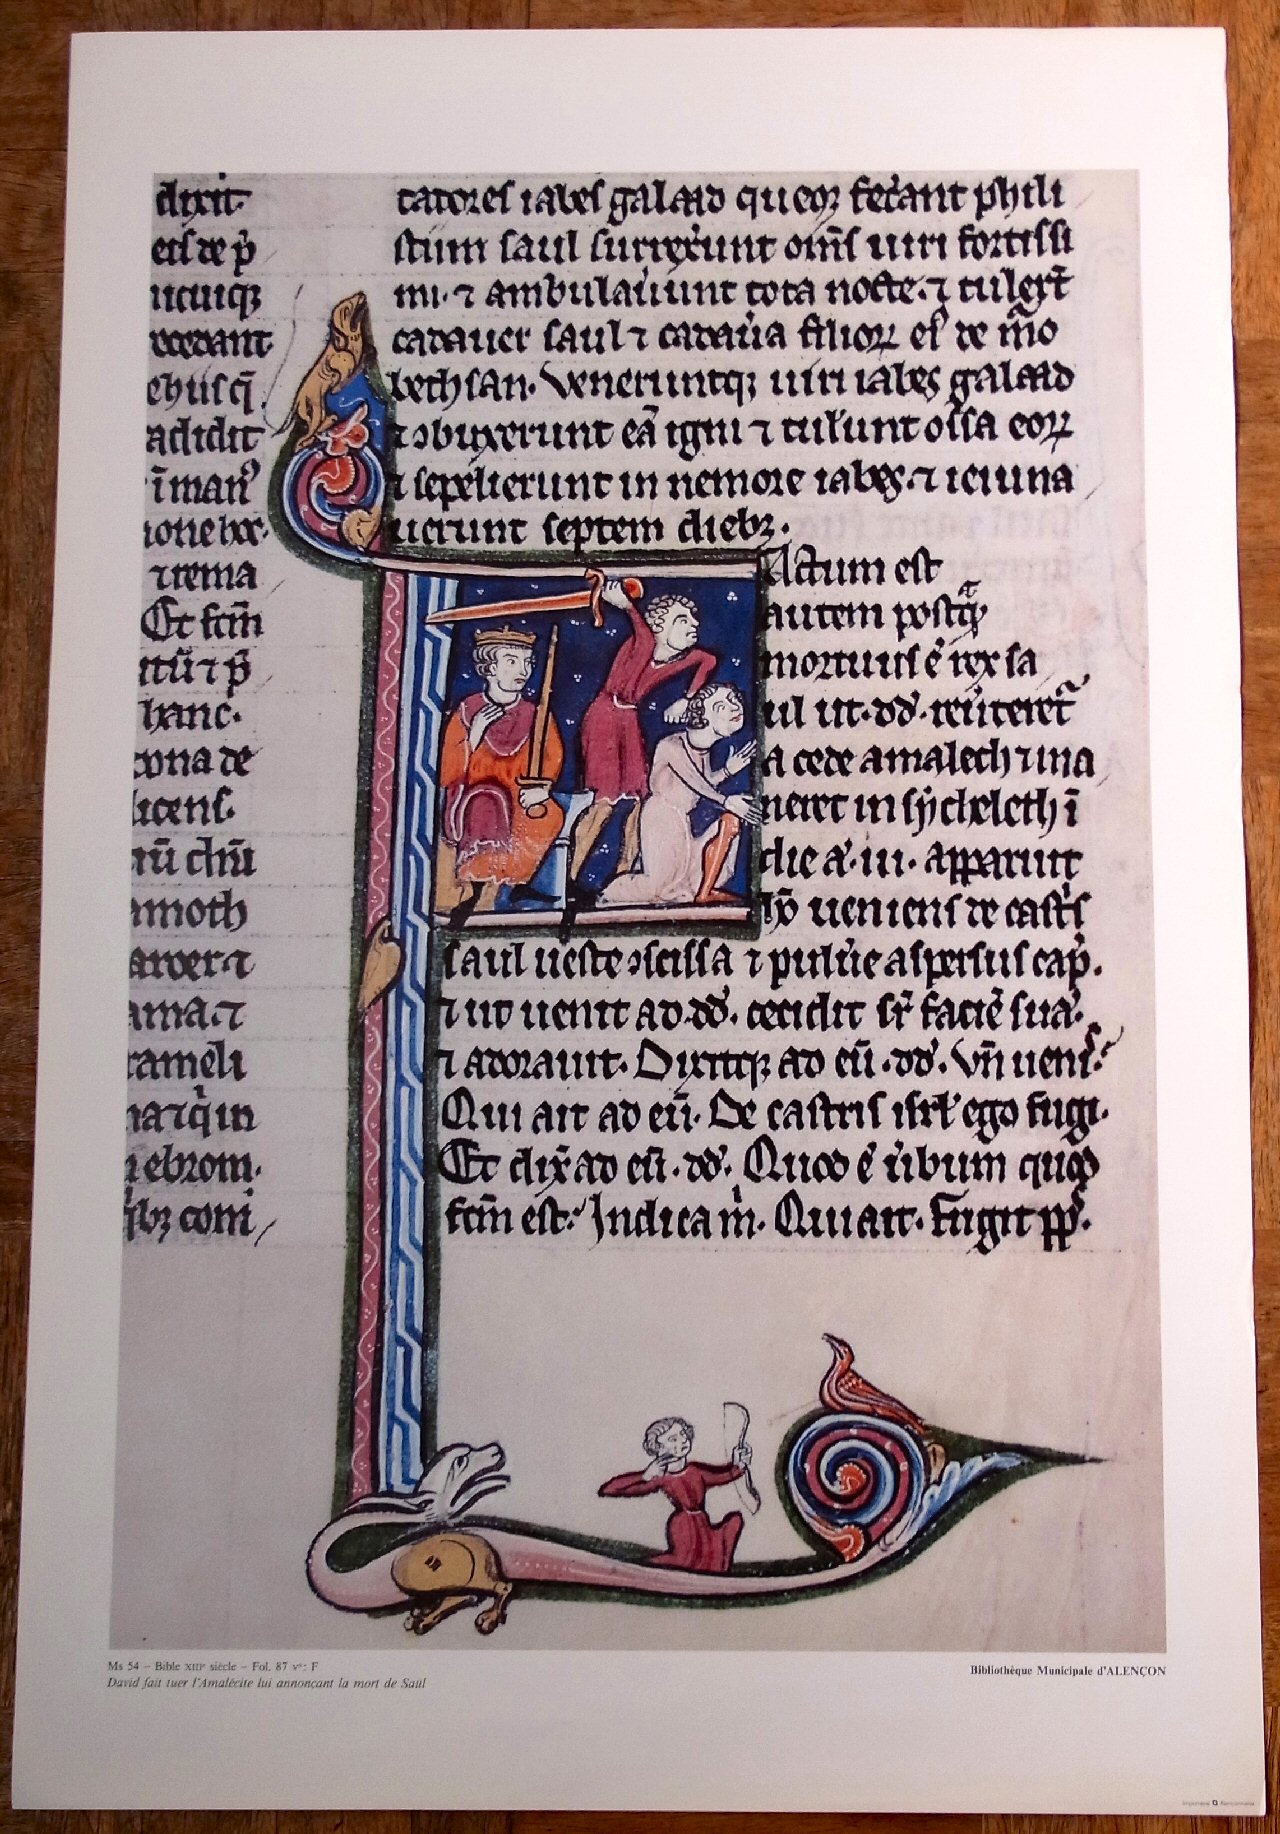 dixit
eis de p̄
uicuiqꝫ
recedant
ebus q̄
adidit
ī man᷒
ione hec·
⁊ rema
Et fcm̄
itū ⁊ p̄
hanc·
cona de
licens·
rū dn̄i
amoth
aroer ⁊
ama· ⁊
rameli
na ⁊ q̇ in
n ebrom·
qͥbꝫ com
tatores iabes galaad queqꝫ fec̓ant phili
stiim saul surrex̓unt om̄s uiri fortissi
mi· ⁊ ambulau̓unt tota nocte· ⁊ tuler̄t
cadauer saul ⁊ cadau̓a filioꝝ eiꝰ de m̄o
bethsan· Veneruntqꝫ uiri iabes galaad
⁊ ↄbuxerunt ea ̄ igni ⁊ tul̓unt ossa eoꝝ
⁊ sepelierunt in nemore iabes· ⁊ ieiuna
uerunt septem diebꝫ·
Factum est
autem postqͣ
mortuus ē rex sa
ul ut· dd̓· reu̓teretᷣ
a cede amalech ⁊ ma
neret in sycheleth ī
die aͣ· iii· apparuit
hō ueniens de castͥs
saul ueste ↄscissa ⁊ pulu̓e aspersus cap̓·
⁊ ut uenit ad· dd̓· cecidit sr̄ faciē suā·
⁊ adorauit· Dixitqꝫ ad eū· dd̓· Vn̄ uenis?
Qui ait ad eū· De castris isrl̓ ego fugi·
Et dix̄ ad eū· dd̓· Quod ē u̓bum quod
fcm̄ est? Indica mͥ· Qui ait· Fugit ppl̓s·
Ms 54 – Bible XIIIᵉ siècle – Fol. 87 vᵒ: F
David fait tuer l'Amalécite lui annonçant la mort de Saül
Bibliothèque Municipale d'ALENÇON